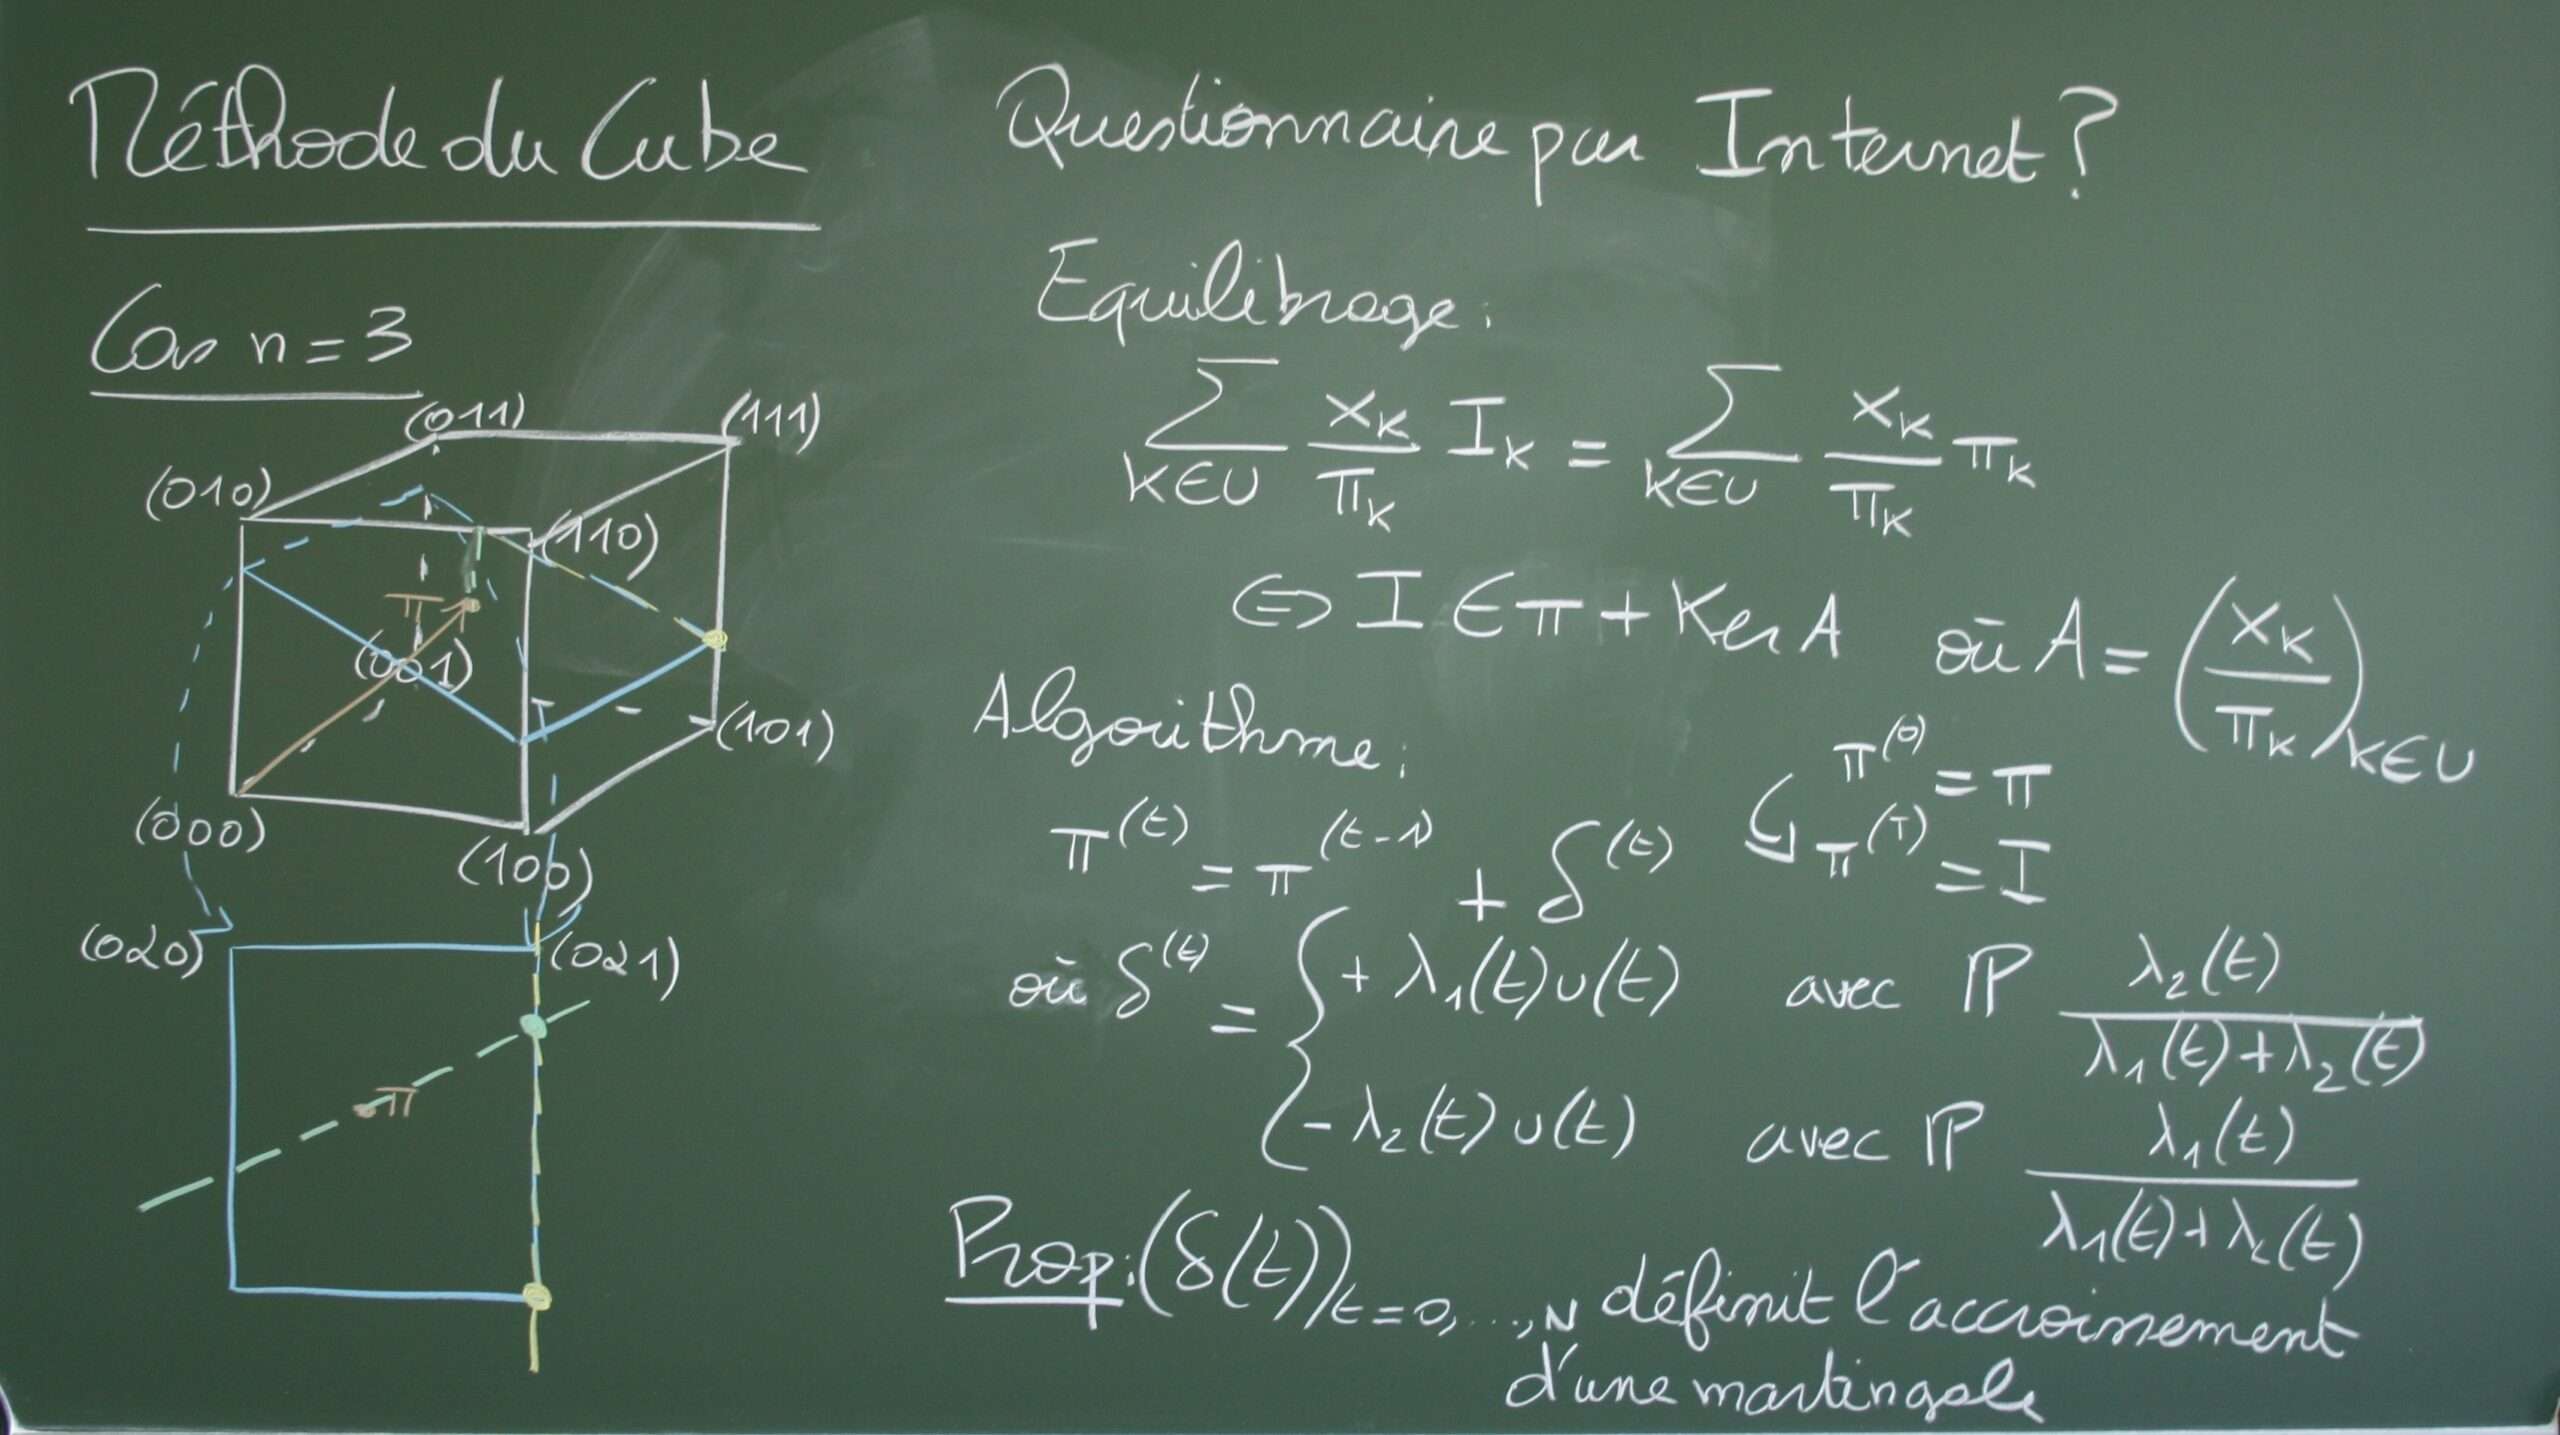 Méthode du Cube
Cas n = 3
(011) (111)
(010) (110)
π
(001)
(101)
(000)
(100)
(0α0) (0α1)
π
Questionnaire par Internet ?
Equilibrage :
∑_{k∈U} x_k/π_k I_k = ∑_{k∈U} x_k/π_k π_k
⇔ I ∈ π + Ker A où A = (x_k/π_k)_{k∈U}
Algorithme :
π^(0) = π
π^(T) = I
π^(t) = π^(t-1) + δ^(t)
où δ^(t) = { + λ₁(t)u(t) avec ℙ λ₂(t)/(λ₁(t)+λ₂(t))
- λ₂(t)u(t) avec ℙ λ₁(t)/(λ₁(t)+λ₂(t))
Prop : (δ(t))_{t=0,...,N} définit l'accroissement
d'une martingale